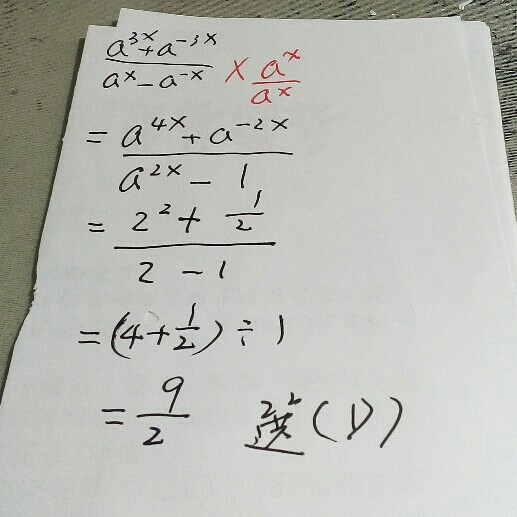 (a^{3x}+a^{-3x})/(a^x-a^{-x}) × a^x/a^x
= (a^{4x}+a^{-2x})/(a^{2x}-1)
= (2^2+1/2)/(2-1)
= (4+1/2)÷1
= 9/2 選(D)